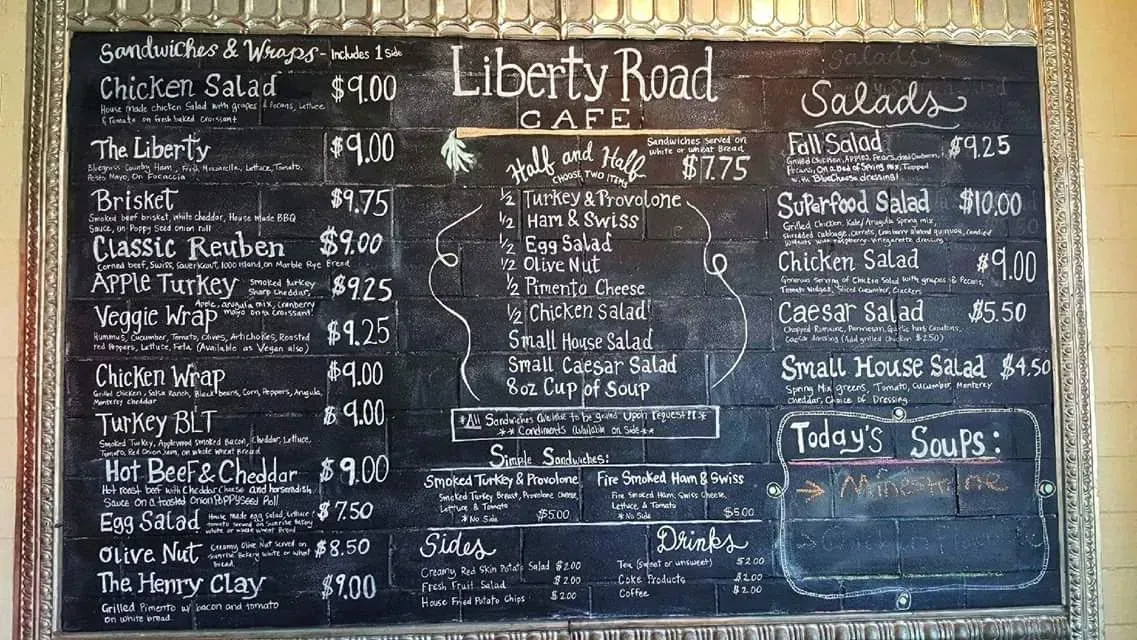 Sandwiches & Wraps - Includes 1 Side
Chicken Salad $9.00
House made chicken Salad with grapes & Pecans, Lettuce
& Tomato on fresh baked Croissant
The Liberty $9.00
Bluegrass Country Ham, Fresh Mozzarella, Lettuce, Tomato,
Pesto Mayo, On Foccacia
Brisket $9.75
Smoked beef brisket, white cheddar, House Made BBQ
Sauce, on Poppy Seed onion roll
Classic Reuben $9.00
Corned beef, Swiss, Sauerkraut, 1000 Island, on Marble Rye Bread
Apple Turkey smoked turkey $9.25
sharp cheddar,
Apple, arugula mix, cranberry
mayo on a Croissant
Veggie Wrap $9.25
Hummus, Cucumber, Tomato, Olives, Artichokes, Roasted
red Peppers, Lettuce, Feta (Available as Vegan also)
Chicken Wrap $9.00
Grilled chicken, Salsa Ranch, Black beans, Corn, Peppers, Arugula,
Monterey cheddar
Turkey BLT $9.00
Smoked Turkey, Applewood smoked Bacon, Cheddar, Lettuce,
Tomato, Red Onion Jam, on whole Wheat Bread
Hot Beef & Cheddar $9.00
Hot roast beef with Cheddar Cheese and horseradish
Sauce on a toasted Onion Poppyseed Roll
Egg Salad House made egg Salad, Lettuce & $7.50
tomato served on Sunrise Bakery
white or whole wheat Bread
Olive Nut Creamy Olive Nut served on $8.50
Sunrise Bakery white or wheat
Bread
The Henry Clay $9.00
Grilled Pimento w/ bacon and tomato
on white bread
Liberty Road
CAFE
Half and Half
CHOOSE TWO ITEMS
Sandwiches served on
white or wheat Bread
$7.75
1/2 Turkey & Provolone
1/2 Ham & Swiss
1/2 Egg Salad
1/2 Olive Nut
1/2 Pimento Cheese
1/2 Chicken Salad
Small House Salad
Small Caesar Salad
8oz Cup of Soup
*All Sandwiches available to be grilled Upon request!!*
** Condiments Available on Side **
Simple Sandwiches:
Smoked Turkey & Provolone
Smoked Turkey Breast, Provolone Cheese,
Lettuce & Tomato
* No Side $5.00
Fire Smoked Ham & Swiss
Fire Smoked Ham, Swiss Cheese,
Lettuce, & Tomato
* No Side $5.00
Sides
Creamy Red Skin Potato Salad $2.00
Fresh Fruit Salad $2.00
House Fried Potato Chips $2.00
Drinks
Tea (sweet or unsweet) $2.00
Coke Products $2.00
Coffee $2.00
Salads
Fall Salad $9.25
Grilled Chicken, Apples, Pears, dried Cranberry,
Pecans, On a Bed of Spring mix, Topped
with BlueCheese dressing!
Superfood Salad $10.00
Grilled Chicken, Kale/Arugula Spring mix,
shredded cabbage, carrots, Cranberry almond quinoa, candied
walnuts with raspberry vinegarette dressing
Chicken Salad $9.00
Generous Serving of Chicken Salad with grapes & Pecans,
Tomato Wedges, Sliced Cucumber, Crackers
Caesar Salad $5.50
Chopped Romaine, Parmesan, Garlic herb Croutons,
Caesar dressing (Add grilled Chicken $2.50)
Small House Salad $4.50
Spring Mix greens, Tomato, Cucumber, Monterey
Cheddar, Choice of Dressing
Today's Soups:
→ Minestrone